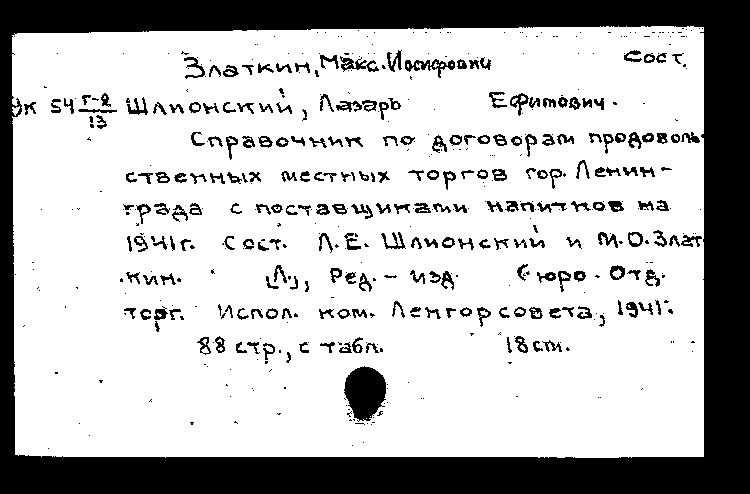 Златкин, Макс. Иосифович сост.
Ук 54 Г-2/13 Шлионский, Лазарь Ефимович.
Справочник по договорам продоволь-
ственных местных торгов гор. Ленин-
града с поставщиками напитков на
1941г. Сост. Л.Е. Шлионский и М.О. Злат
кин. [Л.], Ред.-изд. бюро. Отд.
торг. Испол. ком. Ленгорсовета, 1941.
88 стр., с табл. 18 cm.